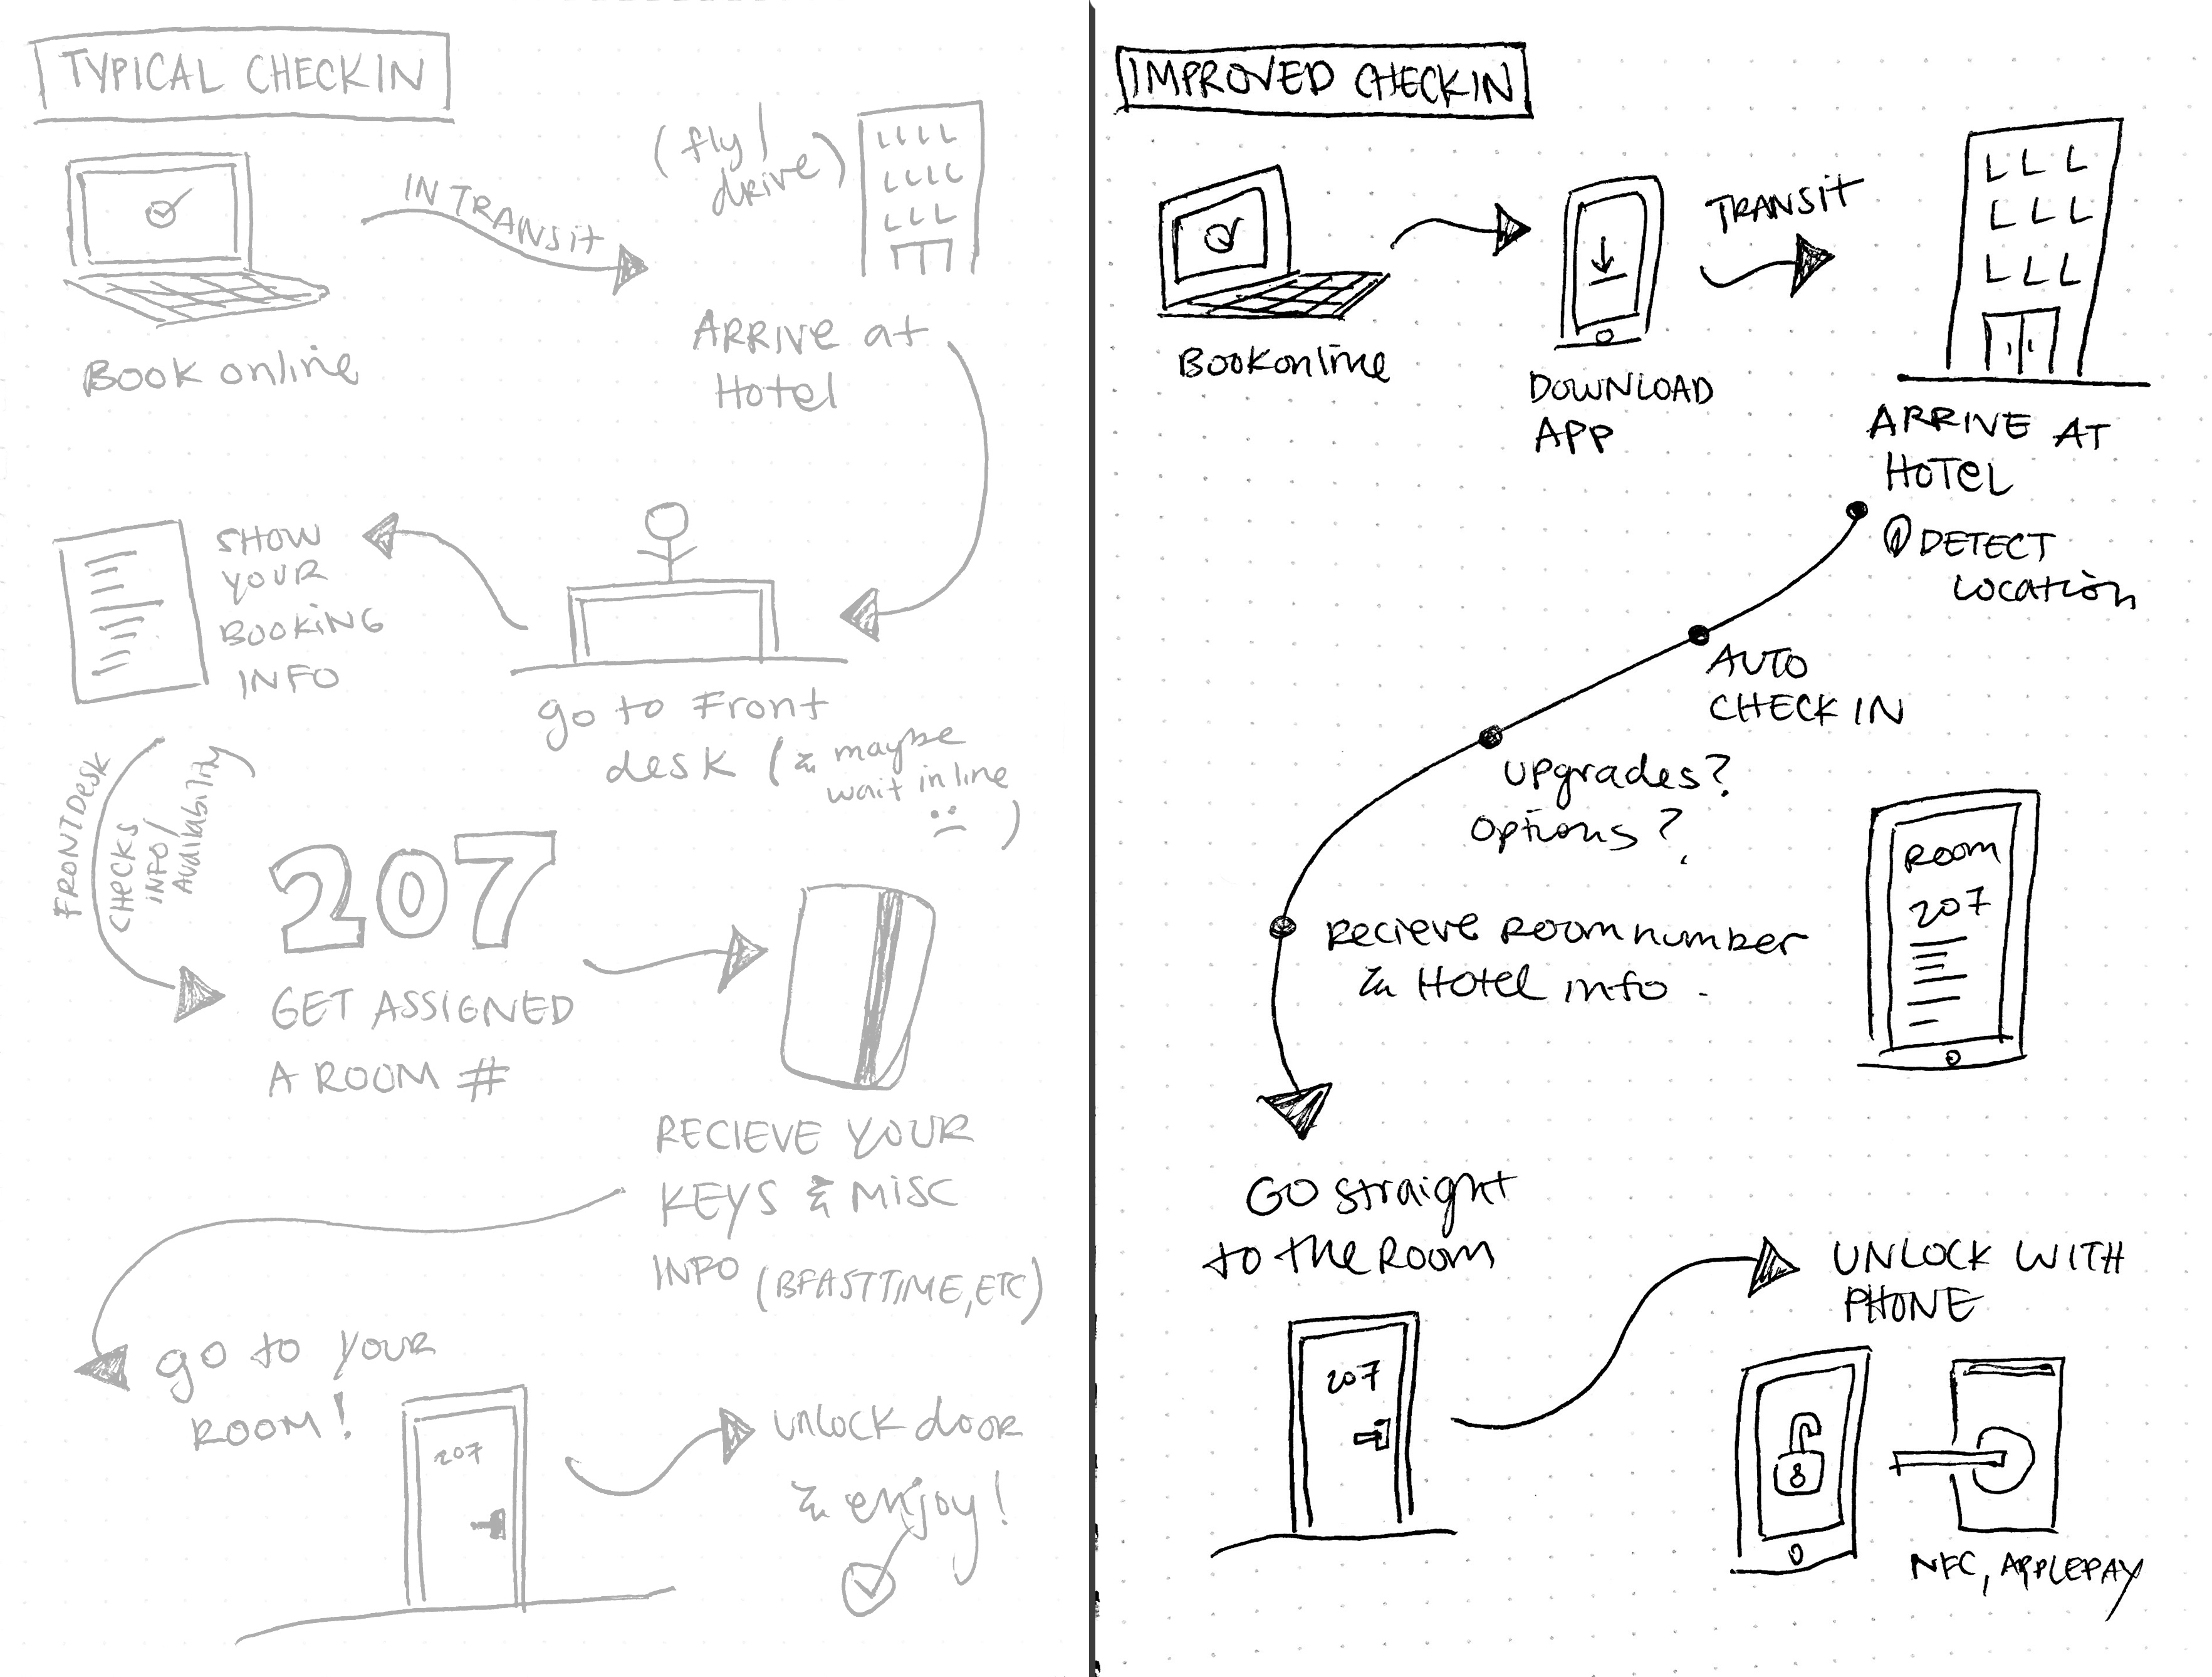 TYPICAL CHECKIN
Book online
IN TRANSIT
(fly /
drive)
ARRIVE at
Hotel
go to Front
desk (& maybe
wait in line
)
SHOW
YOUR
BOOKING
INFO
FRONT DESK
CHECKS
INFO/
Availability
207
GET ASSIGNED
A ROOM #
RECIEVE YOUR
KEYS & MISC
INFO (BFAST TIME, ETC)
go to your
ROOM!
207
UNLOCK door
& enjoy!
IMPROVED CHECKIN
Book online
DOWNLOAD
APP
TRANSIT
ARRIVE AT
HOTEL
DETECT
Location
AUTO
CHECK IN
upgrades?
options?
RECIEVE ROOM number
& Hotel info.
ROOM
207
GO straight
to the ROOM
207
UNLOCK WITH
PHONE
NFC, APPLEPAY